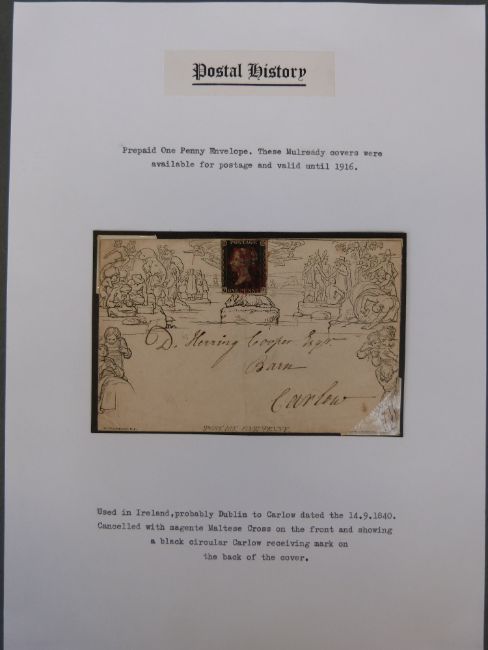 Postal History
Prepaid One Penny Envelope. These Mulready covers were
available for postage and valid until 1916.
POSTAGE
ONE PENNY
D. Herring Cooper Esqr
Barn
Carlow
POSTAGE ONE PENNY.
Used in Ireland,probably Dublin to Carlow dated the 14.9.1840.
Cancelled with magente Maltese Cross on the front and showing
a black circular Carlow receiving mark on
the back of the cover.